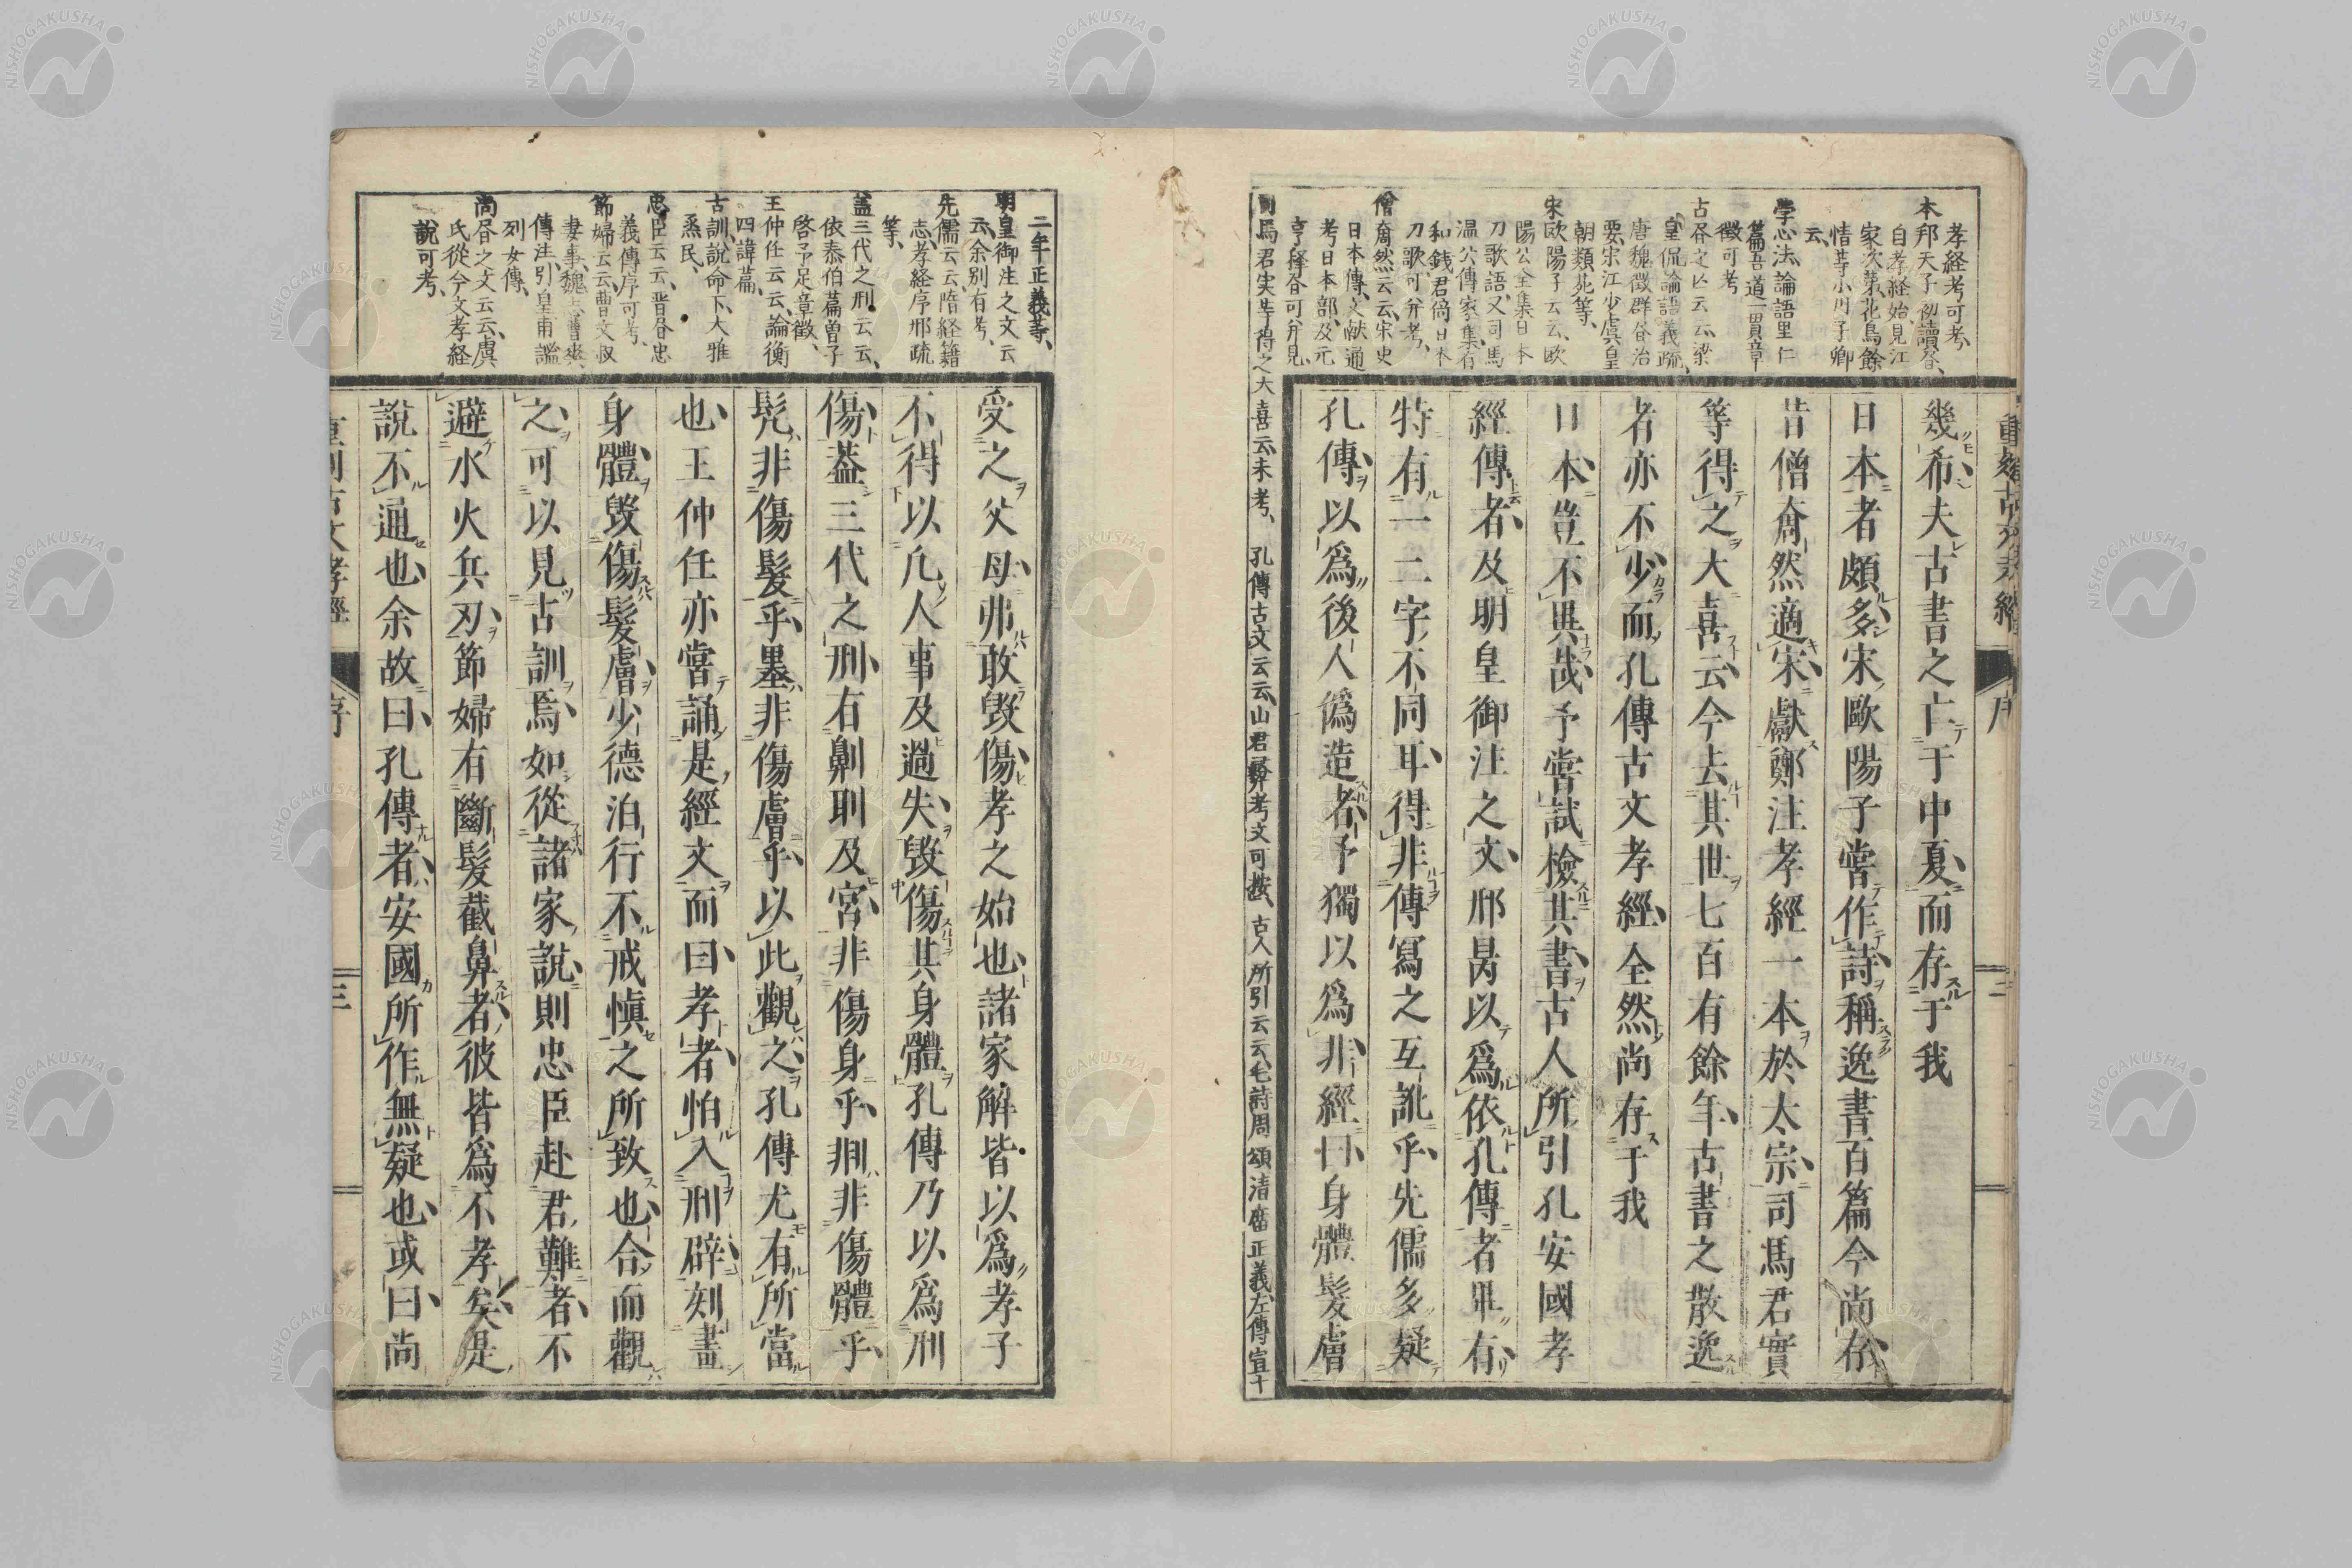 孝経考可考、
本邦天子初讀昏、
自孝経始、見江
家次第、花鳥餘
情等小川子卿
云、
學心法、論語里仁
篇吾道一貫章
徴可考
古昏之亡云云、梁
皇侃論語義疏、
唐魏徴群昏治
要宋江少虞皇
朝類苑等、
宋歐陽子云云、歐
陽公全集日本
刀歌語、又司馬
温公傳家集有
和錢君倚日本
刀歌、可并考、
僧奝然云云、宋史
日本傳、文献通
考日本部、及元
亨釋昏可并見、
司馬君実等得之大喜云云、未考、孔傳古文云云、山君彛考文可按、古人所引云云毛詩周頌清廟正義左傳宣十
幾希夫古書之亡于中夏而存于我
日本者頗多宋歐陽子嘗作詩稱逸書百篇今尚存
昔僧奝然適宋獻鄭注孝經一本於太宗司馬君實
等得之大喜云今去其世七百有餘年古書之散逸
者亦不少而孔傳古文孝經全然尚存于我
日本豈不異哉予嘗試檢其書古人所引孔安國孝
經傳者及明皇御注之文邢昺以爲依孔傳者畢有
特有一二字不同耳得非傳寫之互訛乎先儒多疑
孔傳以爲後人僞造者予獨以爲非經曰身體髮膚
二年正義等、
明皇御注之文云
云、余別有考、
先儒云云、隋経籍
志、孝経序邢疏
等、
蓋三代之刑云云、
依泰伯篇曽子
啓予足章徴、
王仲任云云、論衡
四諱篇、
古訓、説命下、大雅
烝民、
忠臣云云、晋昏忠
義傳序可考、
節婦云云、曹文叔
妻事、魏志曹爽
傳注引皇甫謐
列女傳、
尚昏之文云云、虞
氏從今文孝経
說可考、
受之父母弗敢毀傷孝之始也諸家解皆以爲孝子
不得以凢人事及過失毀傷其身體孔傳乃以爲刑
傷蓋三代之刑有劓刵及宮非傷身乎剕非傷體乎
髠非傷髮乎墨非傷膚乎以此觀之孔傳尤有所當
也王仲任亦嘗誦是經文而曰孝者怕入刑辟刻畫
身體毀傷髮膚少德泊行不戒愼之所致也合而觀
之可以見古訓焉如從諸家說則忠臣赴君難者不
避水火兵刃節婦有斷髮截鼻者彼皆爲不孝矣是
說不通也余故曰孔傳者安國所作無疑也或曰尚